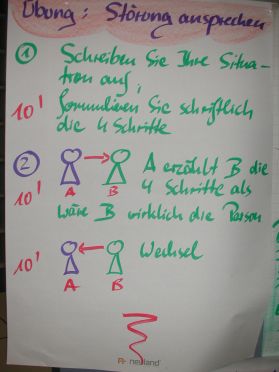 Übung: Störung ansprechen
1 Schreiben Sie Ihre Situa-
tion auf,
10' formulieren Sie schriftlich
die 4 Schritte
2 A erzählt B die
10' A B 4 Schritte als
wäre B wirklich die Person
10' Wechsel
A B
neuland